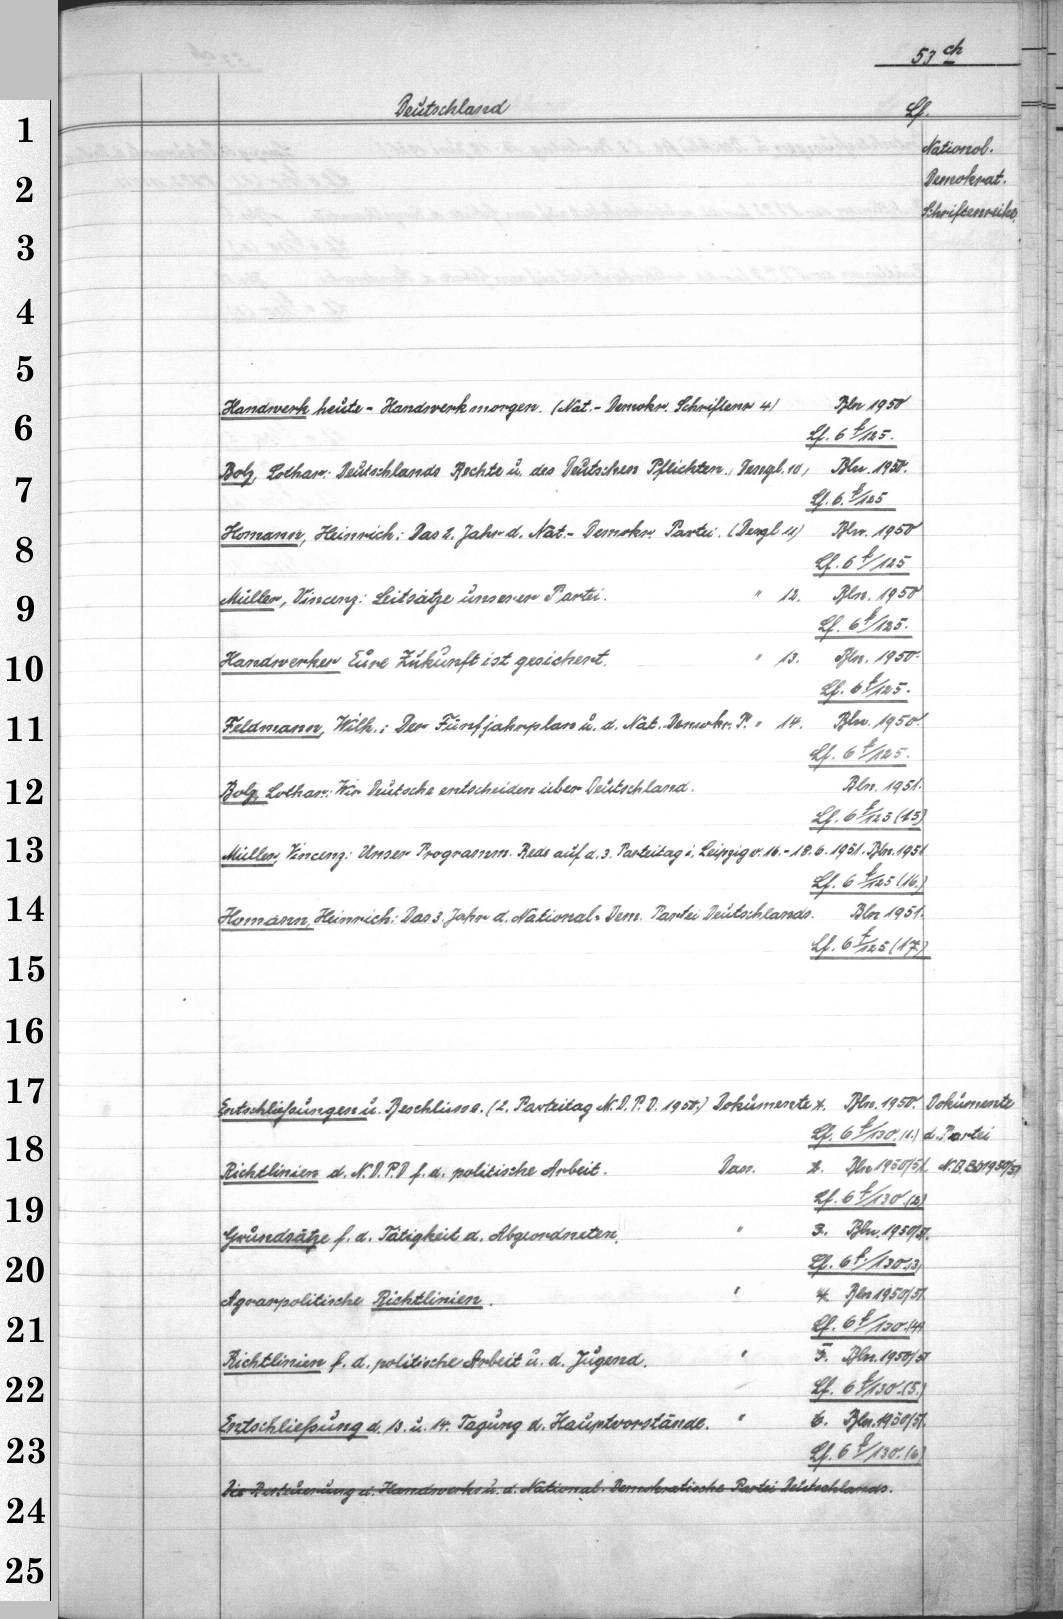 53 ch
Deutschland Lf.
National.
Demokrat.
Schriftenreihe.
1
2
3
4
5
6
7
8
9
10
11
12
13
14
15
16
17
18
19
20
21
22
23
24
25
Handwerk heute - Handwerk morgen. (Nat.- Demokr. Schriftenr 4) Bln 1950
Lf. 6 f/125.
Bolz, Lothar: Deutschlands Rechte u. des Deutschen Pflichten. Desgl. 10, Bln. 1950.
Lf. 6. f/125
Homann, Heinrich: Das 2. Jahr d. Nat.- Demokr. Partei. (Desgl 11) Bln. 1950
Lf. 6 f/125
Müller, Vincenz: Leitsätze unserer Partei. " 12. Bln. 1950
Lf. 6 f/125.
Handwerker Eure Zukunft ist gesichert. " 13. Bln. 1950.
Lf. 6 f/125.
Feldmann, Wilh.: Der Fünfjahrplan u. d. Nat. Demokr. P. " 14. Bln. 1950
Lf. 6 f/125.
Bolz, Lothar: Wir Deutsche entscheiden über Deutschland. Bln. 1951.
Lf. 6 f/125 (15)
Müller, Vincenz: Unser Programm. Rede auf d. 3. Parteitag i. Leipzig v. 16.-18.6.1951. Bln. 1951
Lf. 6 f/125 (16.)
Homann, Heinrich: Das 3. Jahr d. National- Dem. Partei Deutschlands. Bln 1951.
Lf. 6 f/125 (17.)
Entschließungen u. Beschlüsse. (2. Parteitag N.D.P.D. 1950.) Dokumente 1. Bln. 1950. Dokumente
Lf. 6 f/130. (1.) d. Partei
Richtlinien d. N.D.P.D f. d. politische Arbeit. Das. 2. Bln 1950/51. N.D. 1950/51
Lf. 6 f/130 (2)
Grundsätze f. d. Tätigkeit d. Abgeordneten. " 3. Bln. 1950/51.
Lf. 6 f/130.(3)
Agrarpolitische Richtlinien. " 4. Bln 1950/51.
Lf. 6 f/130.(4)
Richtlinien f. d. politische Arbeit u. d. Jugend. " 5. Bln. 1950/51
Lf. 6 f/130.(5.)
Entschließung d. 13. u. 14. Tagung d. Hauptvorstände. " 6. Bln. 1950/51.
Lf. 6 f/130. (6)
Die Besteuerung d. Handwerks u. d. National- Demokratische Partei Deutschlands.